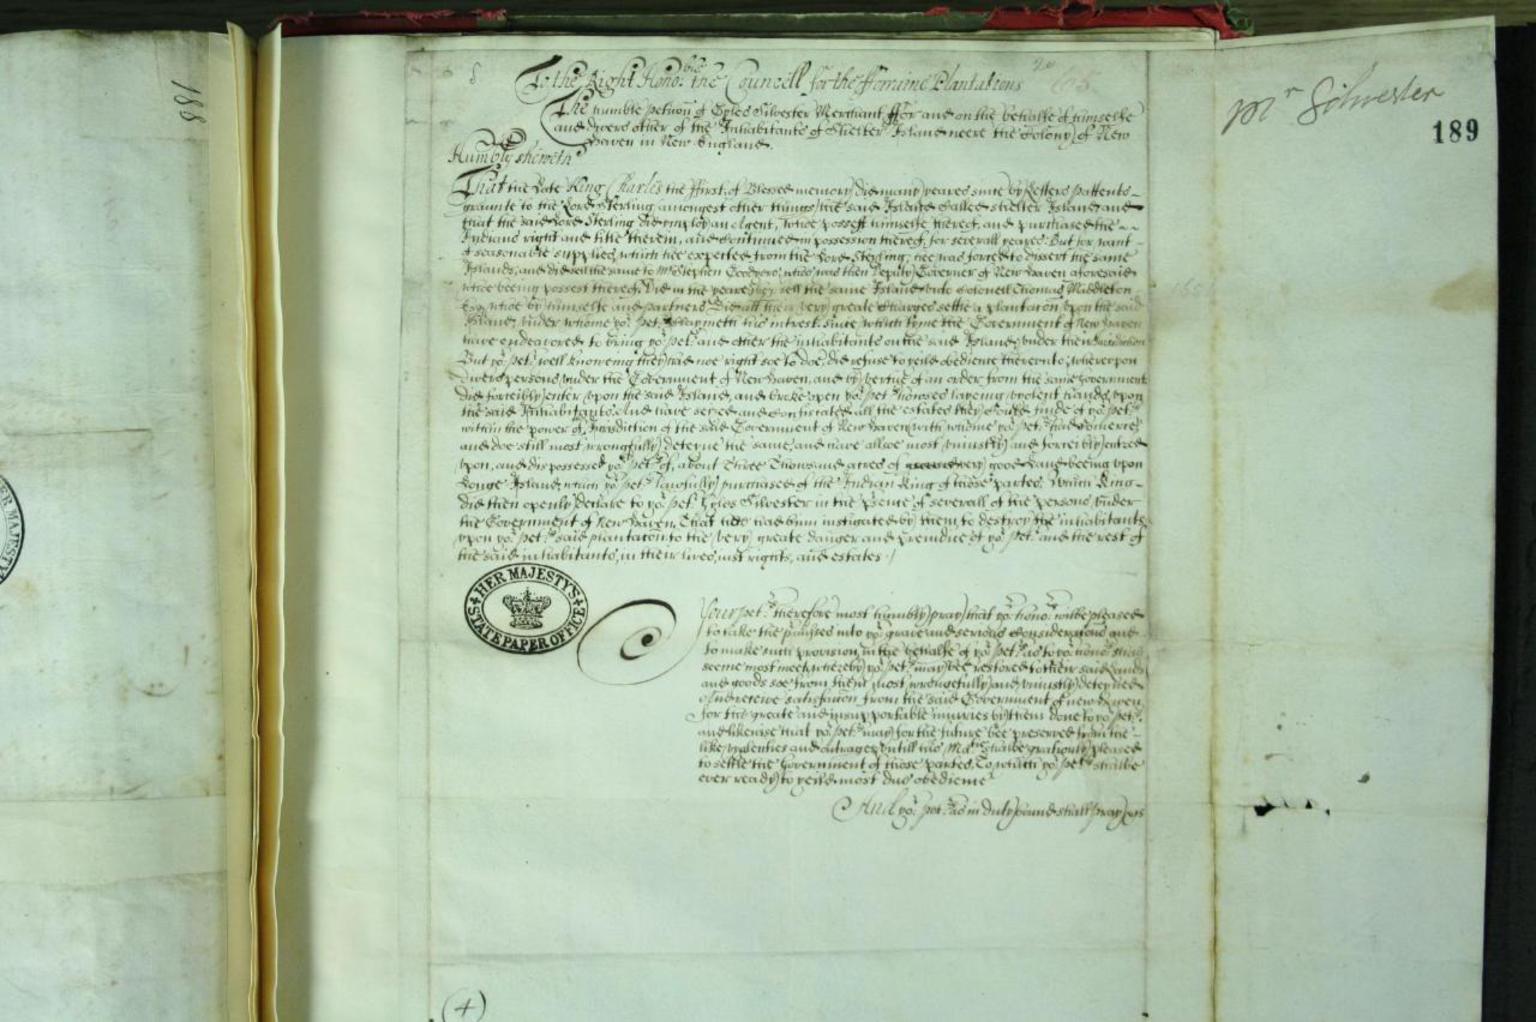 188
To the Right Hono:ble the Councell for the fforraine Plantations
The humble petic͠on of Gyles Silvester Merchant ffor and on the behalfe of himselfe
and divers other of the Inhabitants of Shelter Island neere the Colony of New
Haven in New England.
Humbly sheweth
That the Late King Charles the ffirst, of Blessed memory did many yeares since by Letters pattents
graunte to the Lord Sterling amongest other things the said Island Called Shelter Island and
that the said Lord Sterling did imploy an Agent, whoe possest himselfe thereof, and purchased the
Indians right and title therein, and Continued in possession thereof, for severall yeares: But for want
of seasonable supplies, which hee expected from the Lord Sterling, hee was forced to dissert the same
Islands, and did sell the same to Mr Stephen Goodyeare, whoe was then Deputy Governer of New Haven aforesaid
whoe beeing possest thereof, Did in the yeare sell the same Island unto Colonell Thomas Middleton
whoe by himselfe and partners Did att their very greate Charges settle a plantacon upon the said
Island, under whome yor petr Claymeth his intrest, since which tyme the Government of New Haven
have endeavored to bring yor petr and other the inhabitants on the said Island, under their Jurisdiction
But yor petr well knoweing they had noe right soe to doe, did refuse to yeild obedience thereunto, whereupon
divers persons, under the Government of New Haven, and by vertue of an order from the same Government
did forcibly enter upon the said Island, and broke open yor petrs houses layeing violent hands upon
the said Inhabitants, And have seized and Confiscated all the estates they Could finde of yor petrs
within the power of Jurisdiction of the said Government of New Haven, with whome yor petrs had Comerce,
and doe still most wrongfully deteyne the same, and have allsoe most unjustly and forceibly entred
upon, and dispossessed yor petrs of, about Three Thousand acres of very good Land beeing upon
Longe Island, which yor petrs lawfully purchased of the Indian King of those partes: Which King
did then openly declare to yor petr Gyles Silvester in the p̱sence of severall of the persons, under
the Government of New Haven, That hee had binn instigated by them to destroy the inhabitants
upon yor petrs said plantacon to the very great danger and p̱iudice of yor petr and the rest of
the said inhabitants, in their lives, iust rights, and estates./
HER MAJESTY'S
STATE PAPER OFFICE
Your petrs therefore most humbly pray that yor honors wilbe pleased
to take the p̱misses into yor grave and serious Considerations and
to make such provision in the behalfe of yor petrs as to yor honors shall
seeme most meet, whereby yor petrs may bee restored to their said Lands
and goods soe from them most wrongefully and unjustly deteyned
And receive satisfaction from the said Government of new Haven
for the greate and insupportable iniuries by them done to yor petrs
and likewise that yor petrs may for the future bee preserved from the
like violencies and outrages, untill his Matie shalbe gratiously pleased
to settle the Government of those partes, To which yor petrs shalbe
ever ready to yeild most due obedience
And yor petrs as in duty bound shall pray &c
Mr Silvester
189
(4)